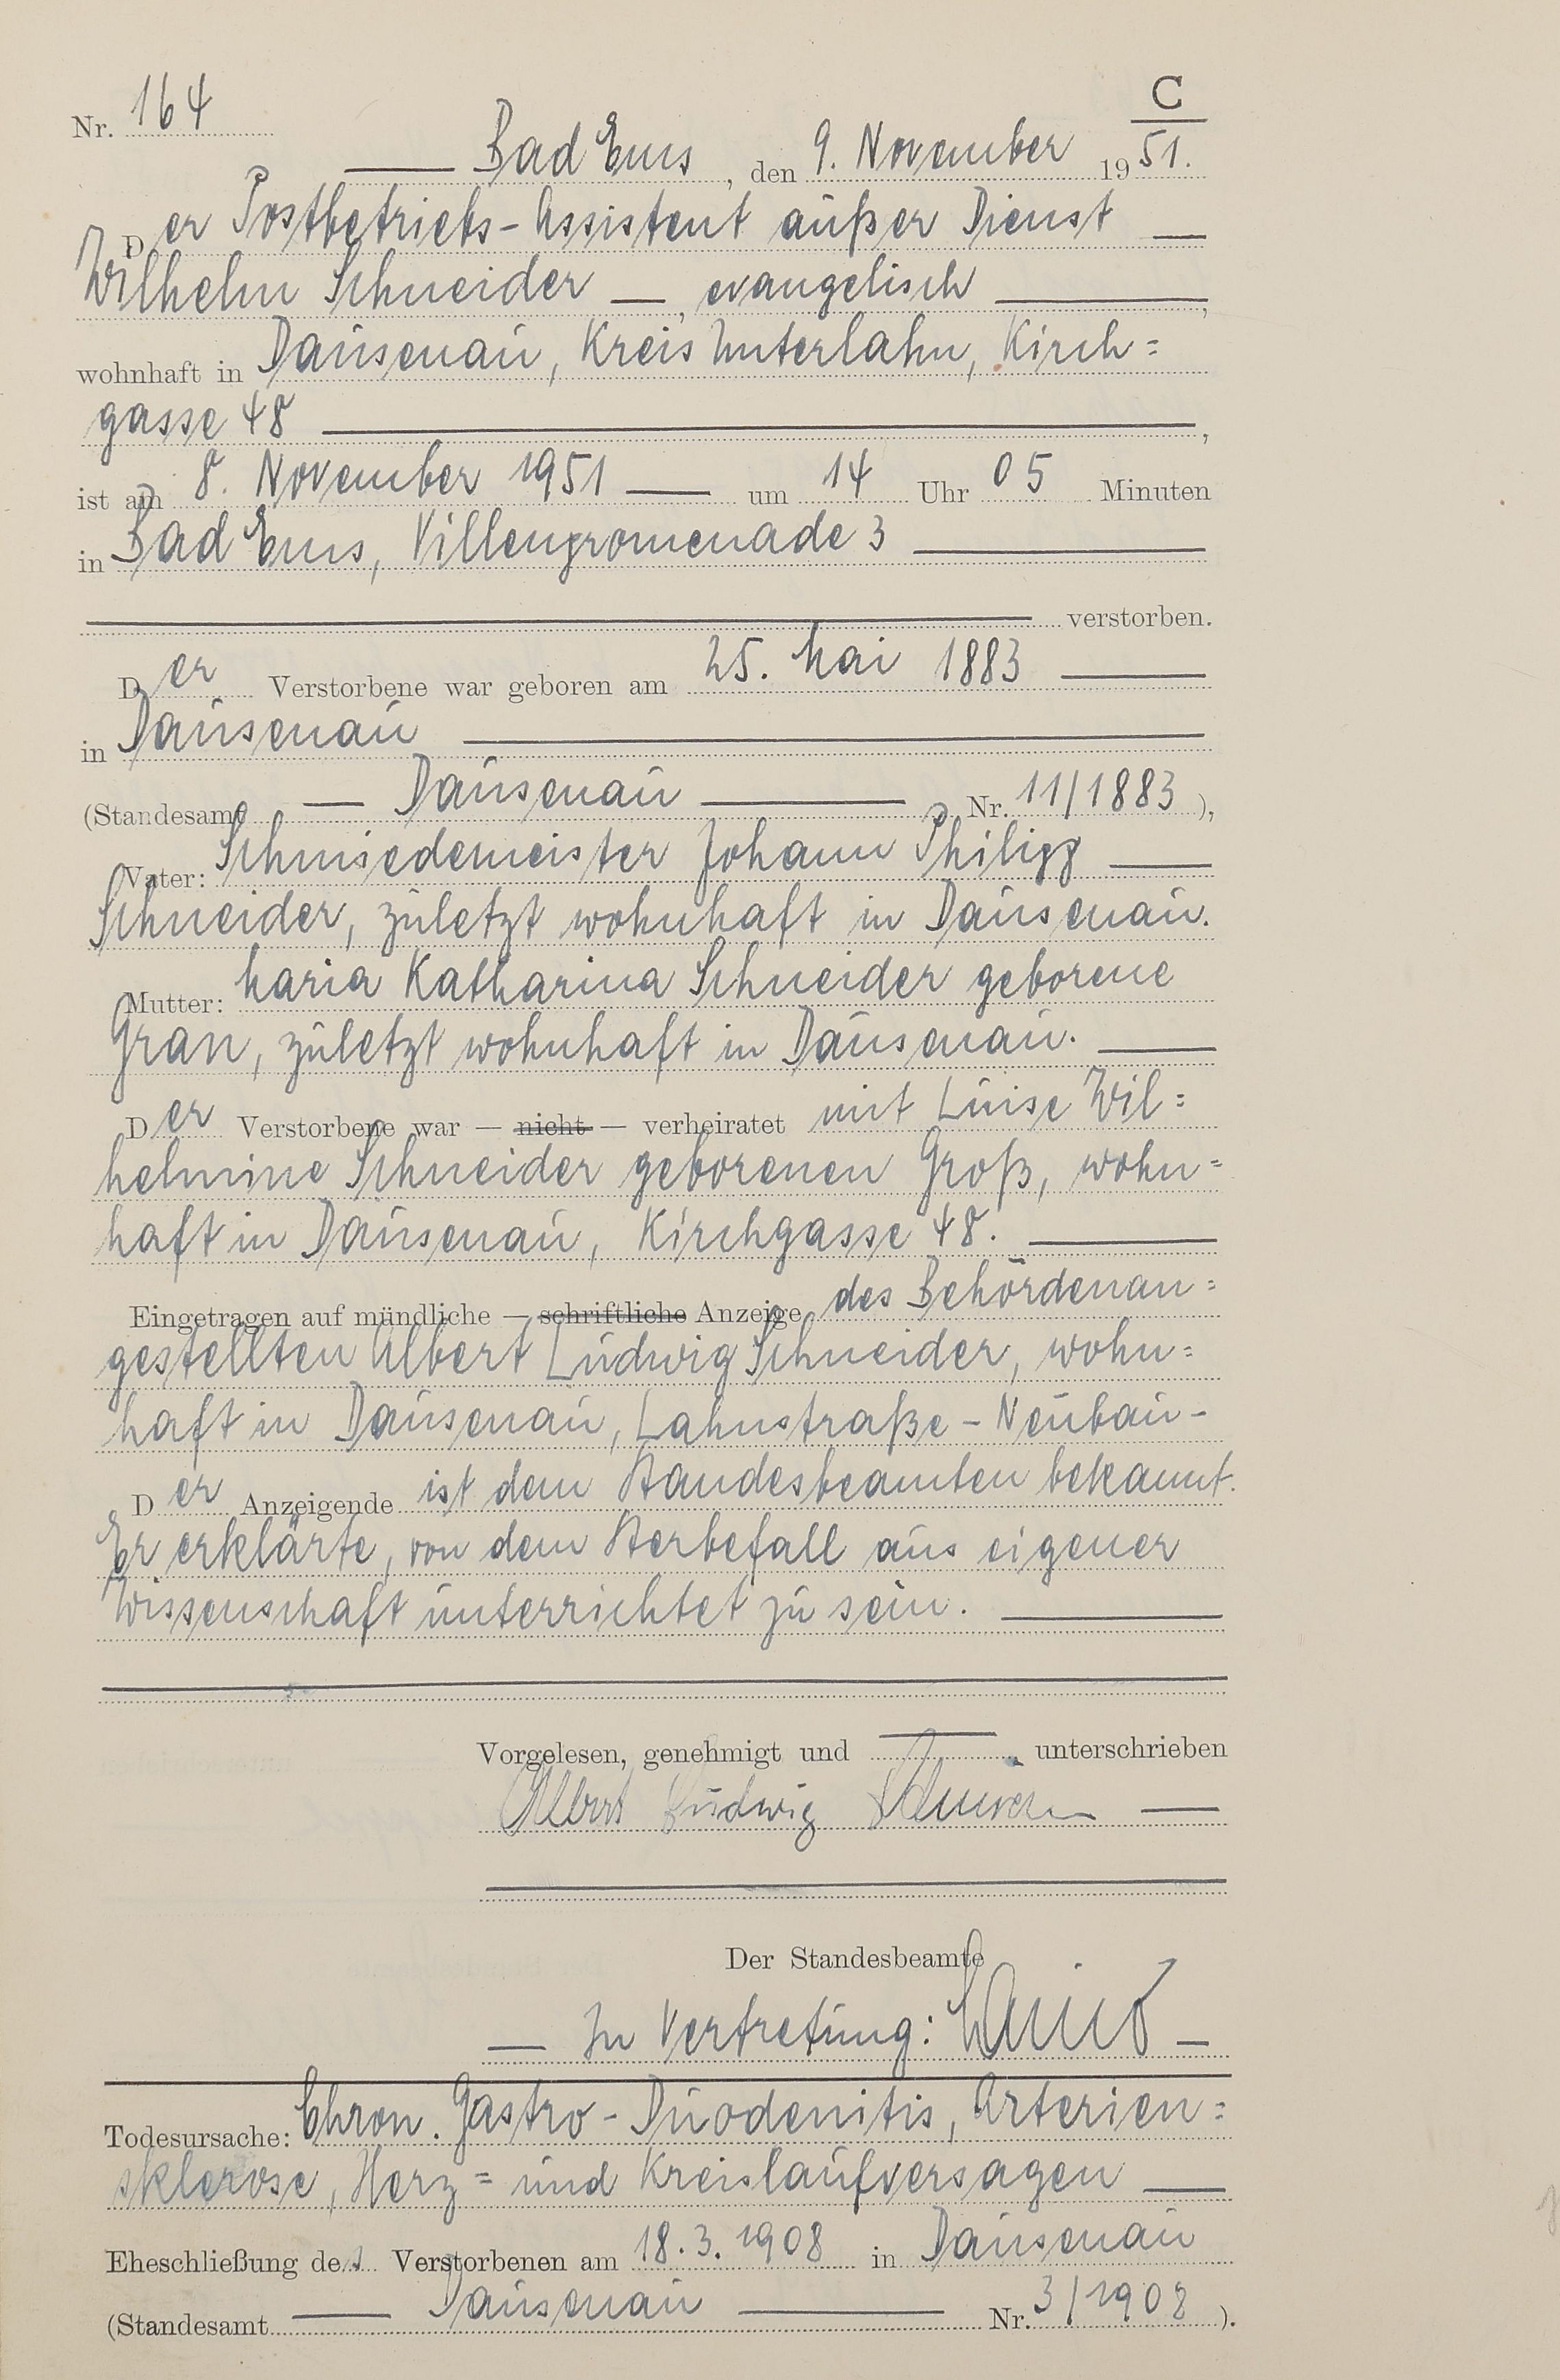 C
Nr. 164
Bad Ems, den 9. November 1951.
Der Postbetriebs-Assistent außer Dienst
Wilhelm Schneider, evangelisch,
wohnhaft in Dausenau, Kreis Unterlahn, Kirch=
gasse 48,
ist am 8. November 1951 um 14 Uhr 05 Minuten
in Bad Ems, Villenpromenade 3
verstorben.
Der Verstorbene war geboren am 25. Mai 1883
in Dausenau
(Standesamt Dausenau Nr. 11/1883),
Vater: Schmiedemeister Johann Philipp
Schneider, zuletzt wohnhaft in Dausenau.
Mutter: Maria Katharina Schneider geborene
Gran, zuletzt wohnhaft in Dausenau.
Der Verstorbene war — nicht — verheiratet mit Luise Wil=
helmine Schneider geborenen Groß, wohn=
haft in Dausenau, Kirchgasse 48.
Eingetragen auf mündliche — schriftliche Anzeige des Behördenan=
gestellten Albert Ludwig Schneider, wohn=
haft in Dausenau, Lahnstraße-Neubau-
Der Anzeigende ist dem Standesbeamten bekannt.
Er erklärte, von dem Sterbefall aus eigener
Wissenschaft unterrichtet zu sein.
Vorgelesen, genehmigt und unterschrieben
Albert Ludwig Schneider
Der Standesbeamte
In Vertretung:
Todesursache: Chron. Gastro-Duodenitis, Arterien=
sklerose, Herz= und Kreislaufversagen
Eheschließung des Verstorbenen am 18.3.1908 in Dausenau
(Standesamt Dausenau Nr. 3/1908).